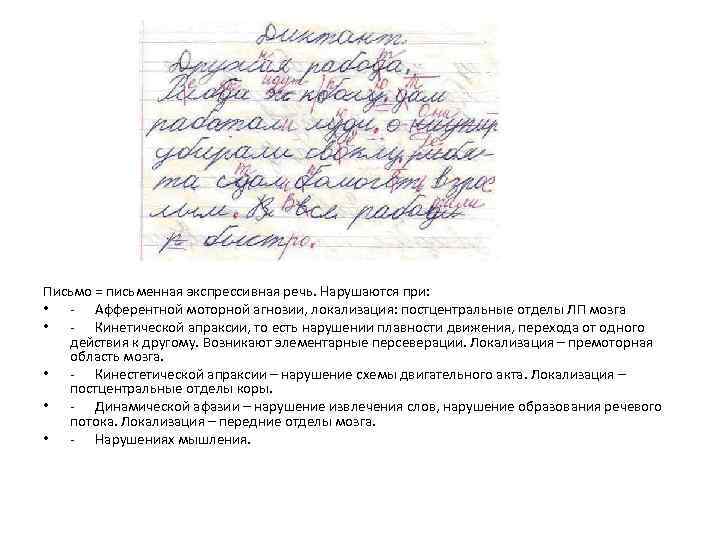 Диктант.
Дружая рабода.
работали луди. о
убирали своклу.
та сдали
лым. В все рабо
быстро.
Письмо = письменная экспрессивная речь. Нарушаются при:
• - Афферентной моторной агнозии, локализация: постцентральные отделы ЛП мозга
• - Кинетической апраксии, то есть нарушении плавности движения, перехода от одного
действия к другому. Возникают элементарные персеверации. Локализация – премоторная
область мозга.
• - Кинестетической апраксии – нарушение схемы двигательного акта. Локализация –
постцентральные отделы коры.
• - Динамической афазии – нарушение извлечения слов, нарушение образования речевого
потока. Локализация – передние отделы мозга.
• - Нарушениях мышления.